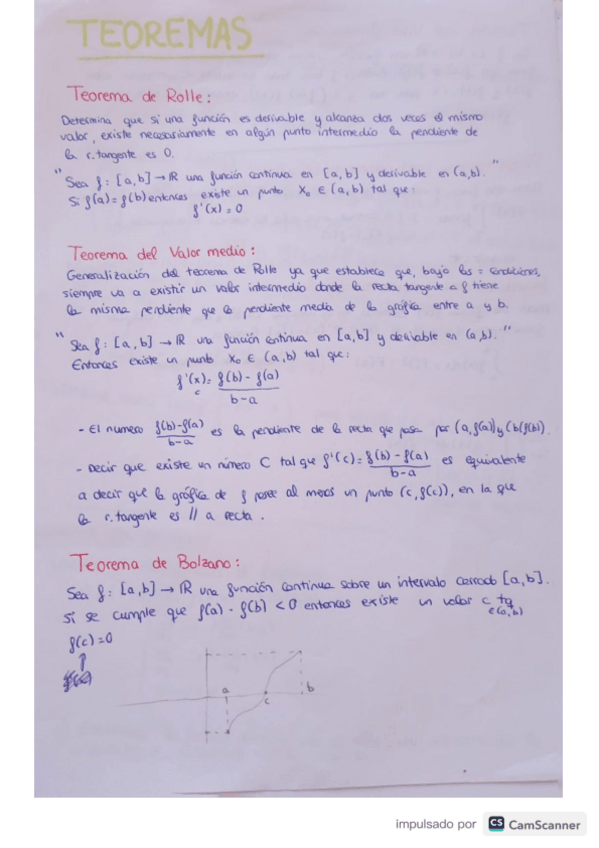 TEOREMAS
Teorema de Rolle:
Determina que si una función es derivable y alcanza dos veces el mismo
valor, existe necesariamente en algún punto intermedio la pendiente de
la r. tangente es 0.
" Sea f: [a,b] → ℝ una función continua en [a,b] y derivable en (a,b). "
Si f(a) = f(b) entonces existe un punto x₀ ∈ (a,b) tal que:
f'(x) = 0
Teorema del Valor medio:
Generalización del teorema de Rolle ya que establece que, bajo las = condiciones,
siempre va a existir un valor intermedio donde la recta tangente a f tiene
la misma pendiente que la pendiente media de la gráfica entre a y b.
" Sea f: [a,b] → ℝ una función continua en [a,b] y derivable en (a,b). "
Entonces existe un punto x₀ ∈ (a,b) tal que:
f'(x) = f(b) - f(a)
c
b-a
- El numero f(b)-f(a) es la pendiente de la recta que pasa por (a, f(a)) y (b(f(b)).
b-a
- Decir que existe un número C tal que f'(c) = f(b) - f(a) es equivalente
b-a
a decir que la gráfica de f posee al menos un punto (c, f(c)), en la que
la r. tangente es // a recta.
Teorema de Bolzano:
Sea f: [a,b] → ℝ una función continua sobre un intervalo cerrado [a,b].
Si se cumple que f(a) · f(b) < 0 entonces existe un valor c tq
∈(a,b)
f(c) = 0
a
b
c
impulsado por CS CamScanner